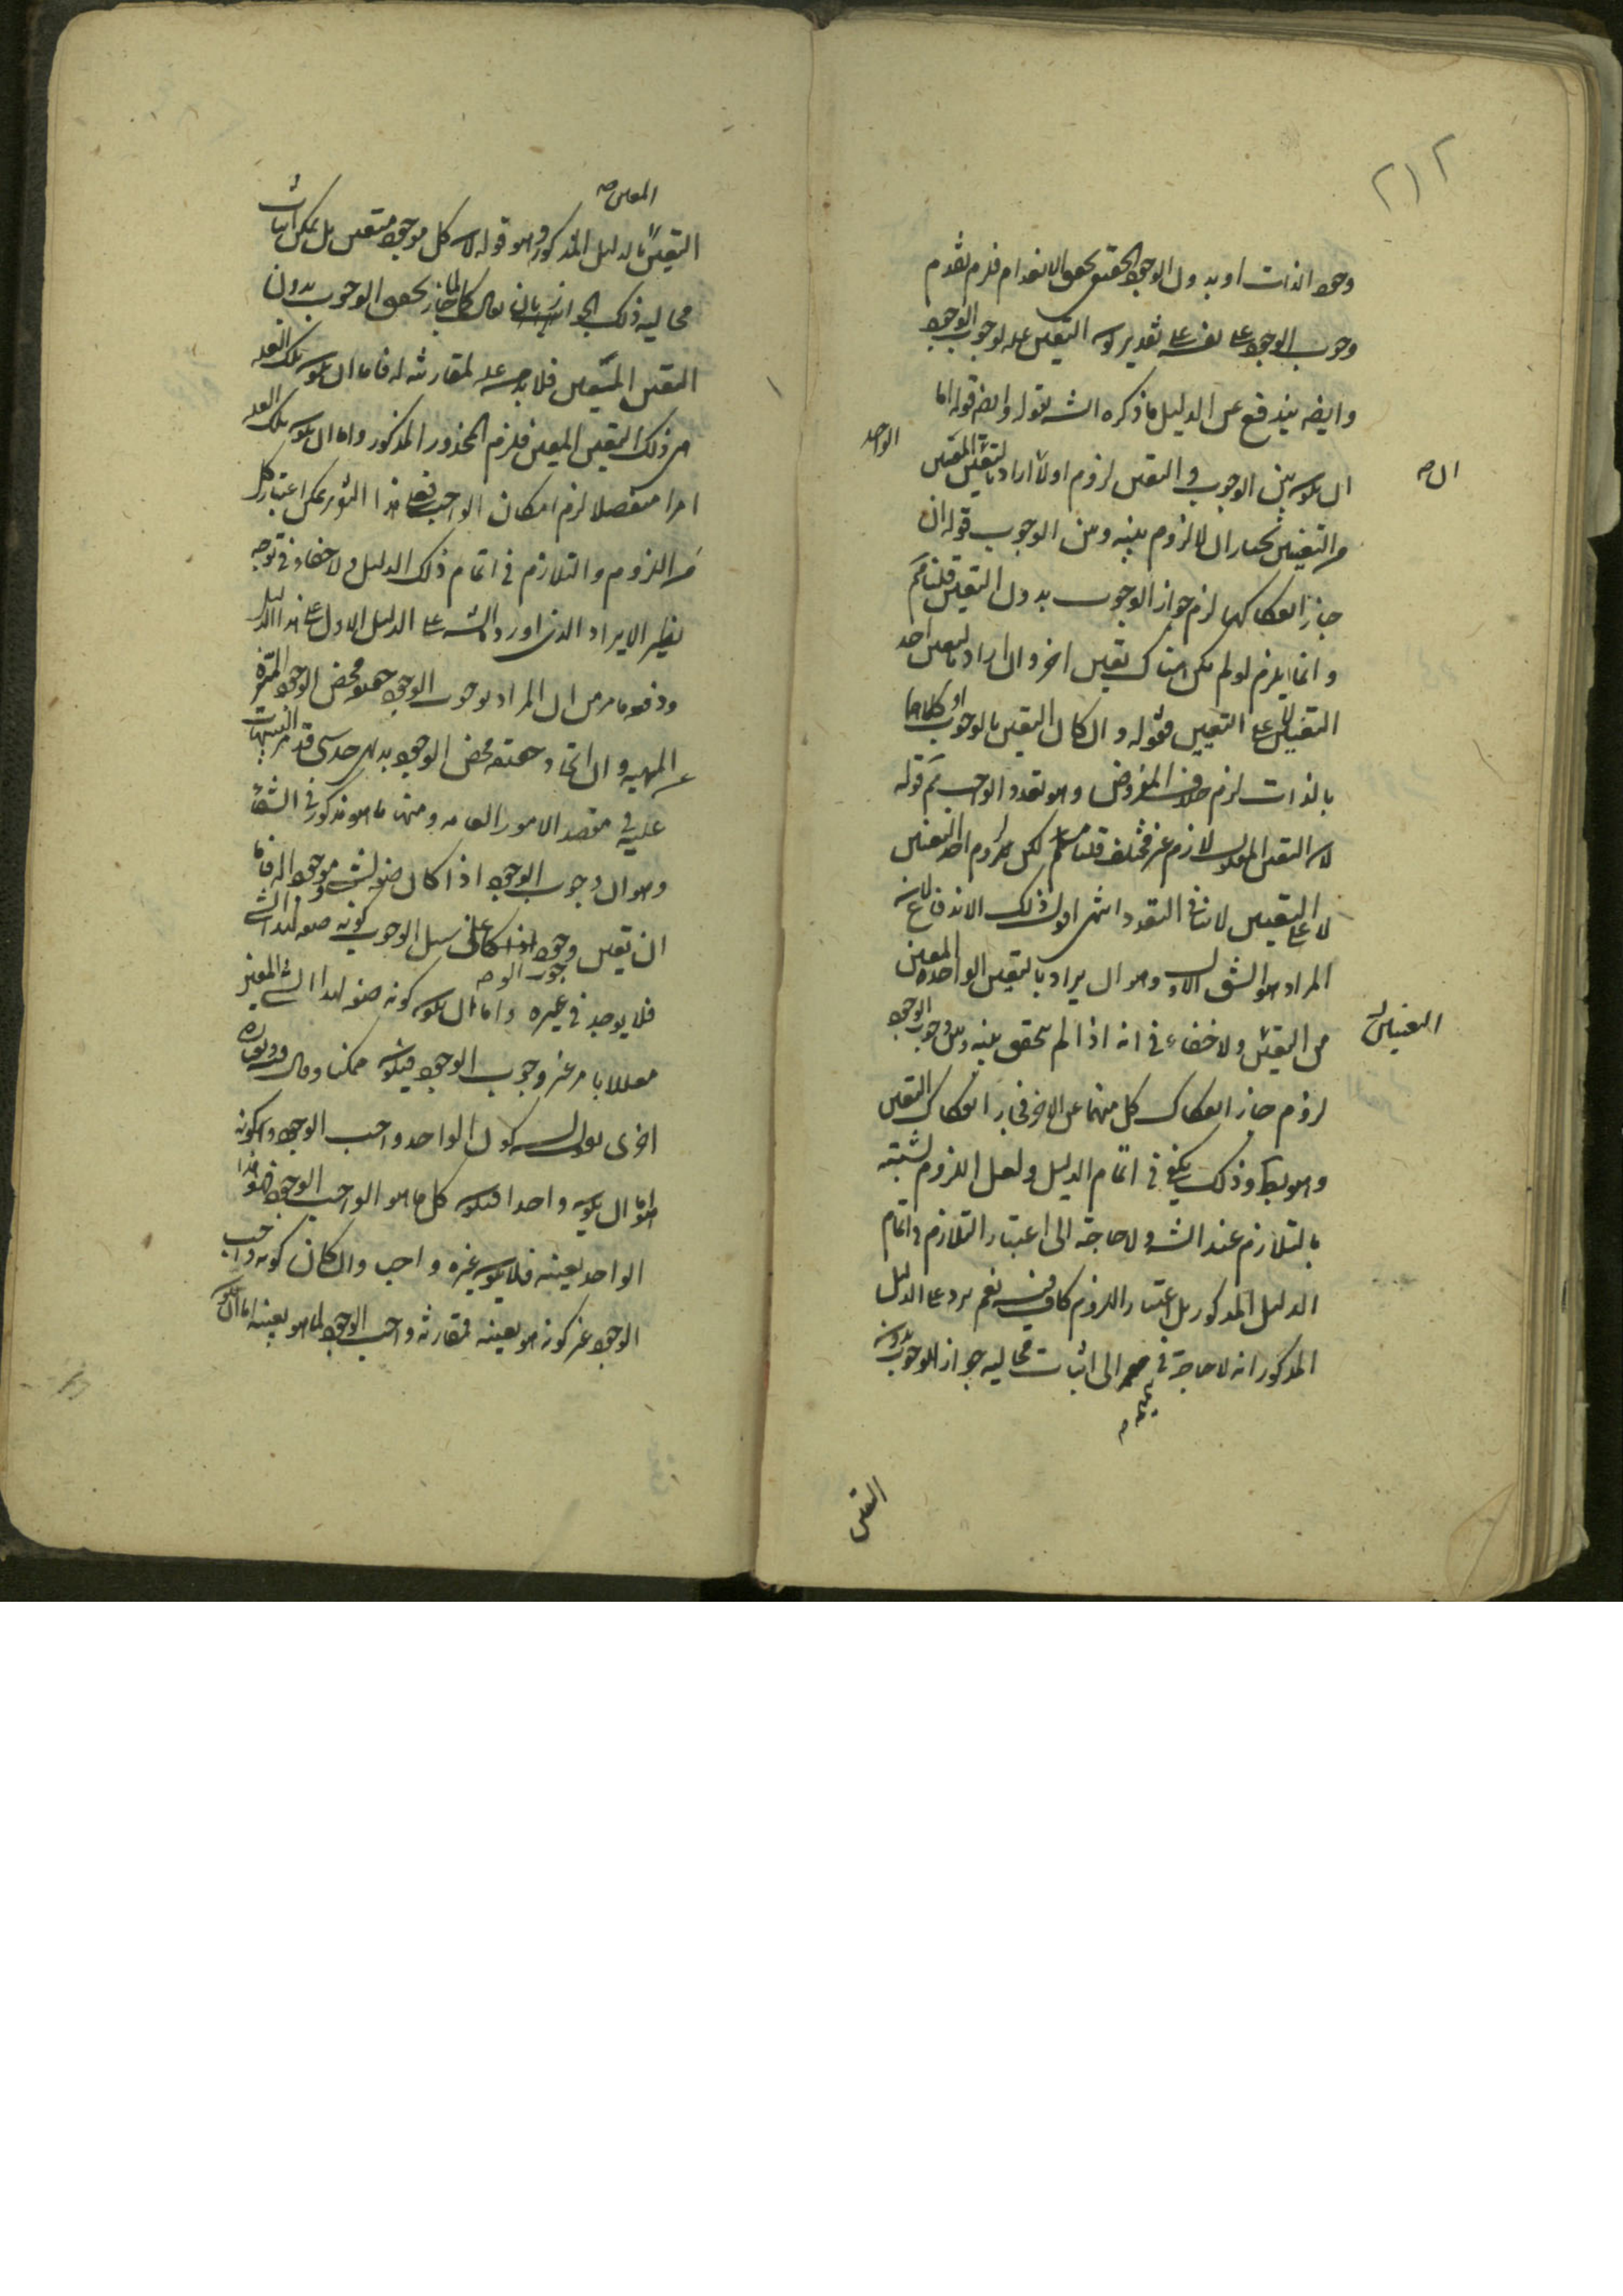 ٢١٢
وجود الذات او بدون الوجود الحقيقى الانعدام فلزم تقدم
وجوب الوجود على نفسه على تقدير كون التعين عله لوجوب الوجود
وايضه يندفع عن الدليل ما ذكره الشه بقوله وايضه قوله اما
ان يكون بين الوجوب والتعين لزوم اولا اراد بالتعين المعين
الواحد
ان صه
من التعينين نختار ان لا لزوم بينه وبين الوجوب قوله ان
جاز انفكاكهما لزم جواز الوجوب بدون التعين قلنا ثم
وانما يلزم لو لم يكن هناك تعين اخر وان اراد بالتعين احد
التعينين التعين فقوله وان كان التعين بالوجوب او كلاهما
بالذات لزم خلاف المفروض وهو تعدد الواجب ثم قوله
لان التعين المعلول لازم غير مختلف قلنا مسلم لكن لزوم احد التعينين
لا على التعيين لا ينافى التعدد انتهى اقول ذلك الاندفاع لان
المراد هو الشق الاول وهو ان يراد بالتعين الواحد المعين
التعينين
من التعين ولا خفاء فى انه اذا لم يتحقق بينه وبين وجوب الوجود
لزوم جاز انفكاك كل منهما عن الاخر فجاز انفكاك التعين
وهو بط وذلك يكفى فى اتمام الدليل ولعل اللزوم لشبته
بالتلازم عند الشه ولا حاجة الى اعتبار التلازم و اتمام
الدليل المذكور بل اعتبار اللزوم كاف فيه نعم يرد على الدليل
المذكور انه لا حاجة فى تتميمه الى اثبات محالية جواز الوجوب بدون
التعين
المعين صه
التعين بالدليل المذكور وهو قوله لان كل موجود متعين بل يمكن اثبات
محالية ذلك الجواز بان يقال لما جاز تحقق الوجوب بدون
التعين المتعين فلا بد من علة لمقارنته له فاما ان يكون تلك العلة
من ذلك التعين المعين فلزم المحذور المذكور واما ان يكون تلك العلة
امرا منفصلا لزم امكان الواجب تعالى هذا التوجيه يمكن اعتبار كل
من اللزوم والتلازم فى اتمام ذلك الدليل ولا خفاء فى توجه
نظير الايراد الذى اورده الشه على الدليل الاول على هذا الدليل
ودفعه ما مر من ان المراد بوجوب الوجود حقيقة محض الوجود المنزه
عن المهيه وان اتحاد حقيقة محض الوجود بديهى حدسى قد مر التنبيهات
عليه فى مقصد الامور العامه ومنها ما هو مذكور فى الشفاء
وهو ان وجوب الوجود اذا كان صفة لشئ موجود له فاما
ان تعين وجود على سبيل الوجوب كونه صفة لهذا الشئ
فلا يوجد فى غيره واما ان يكون كونه صفة لهذا الشئ المعين
معللا بامر غير وجوب الوجود فيكون ممكنا وقال بعباره
اخرى نقول ان كون الواحد واجب الوجود وكونه
هو اما ان يكون واحدا فيكون كل ما هو الواجب الوجود فهو هذا
الواحد بعينه فلا يكون غيره واجب وان كان كونه واجب
الوجود غير كونه هو بعينه فمقارنة واجب الوجود لما هو بعينه اما ان يكون